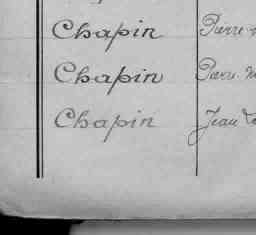 Chapin Pierre
Chapin Pierre
Chapin Jean